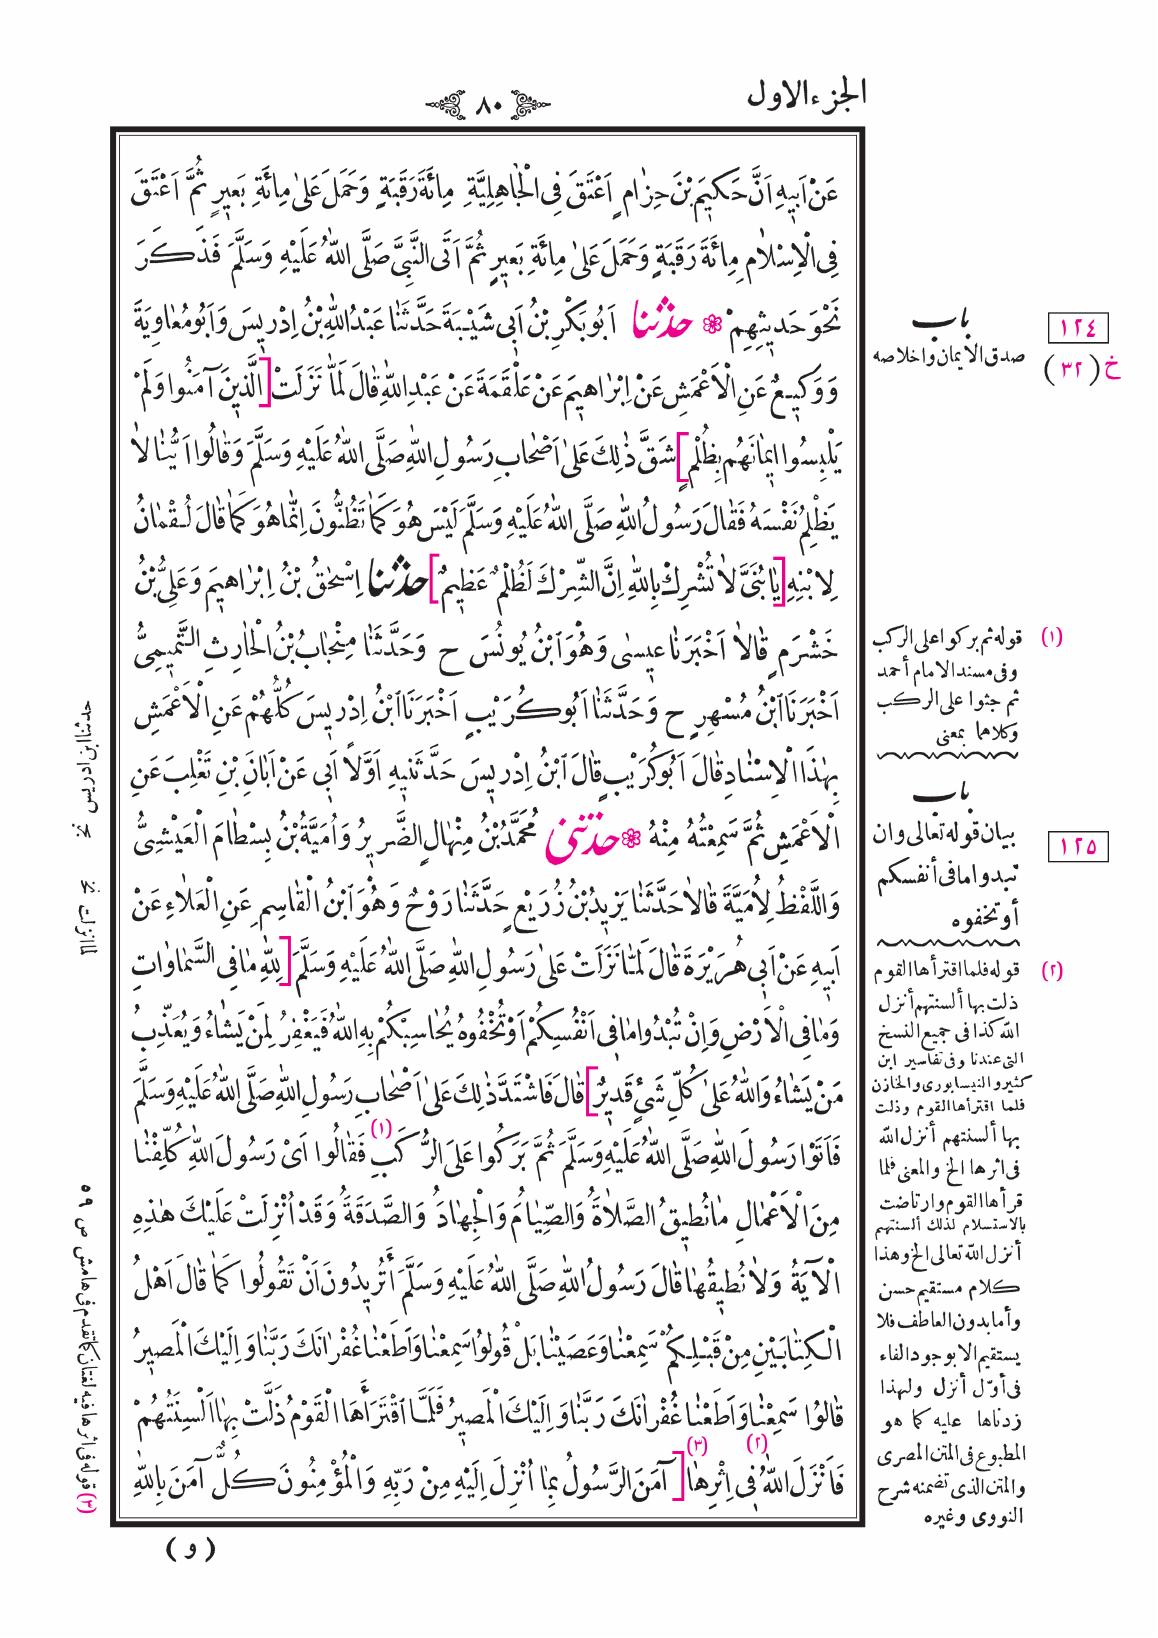 الجزء الاول
٨٠
عَنْ اَبيهِ اَنَّ حَكيمَ بْنَ حِزٰامٍ اَعْتَقَ فِى الْجٰاهِلِيَّةِ مِائَةَ رَقَبَةٍ وَحَمَلَ عَلىٰ مِائَةِ بَعيرٍ ثُمَّ اَعْتَقَ
فِى الْاِسْلٰامِ مِائَةَ رَقَبَةٍ وَحَمَلَ عَلىٰ مِائَةِ بَعيرٍ ثُمَّ اَتَى النَّبِىَّ صَلَّى اللّٰهُ عَلَيْهِ وَسَلَّمَ فَذَكَرَ
نَحْوَ حَديثِهِمْ ۞ حدثنا اَبُو بَكْرِ بْنُ اَبى شَيْبَةَ حَدَّثَنٰا عَبْدُ اللّٰهِ بْنُ اِدْريسَ وَاَبُو مُعٰاوِيَةَ
وَوَكيعٌ عَنِ الْاَعْمَشِ عَنْ اِبْرٰاهيمَ عَنْ عَلْقَمَةَ عَنْ عَبْدِ اللّٰهِ قٰالَ لَمّٰا نَزَلَتْ [الَّذينَ آمَنُوا وَلَمْ
يَلْبِسُوا ايمٰانَهُمْ بِظُلْمٍ] شَقَّ ذٰلِكَ عَلىٰ اَصْحٰابِ رَسُولِ اللّٰهِ صَلَّى اللّٰهُ عَلَيْهِ وَسَلَّمَ وَقٰالُوا اَيُّنٰا لاٰ
يَظْلِمُ نَفْسَهُ فَقٰالَ رَسُولُ اللّٰهِ صَلَّى اللّٰهُ عَلَيْهِ وَسَلَّمَ لَيْسَ هُوَ كَمٰا تَظُنُّونَ اِنَّمٰا هُوَ كَمٰا قٰالَ لُقْمٰانُ
لِابْنِهِ [يٰا بُنَىَّ لاٰ تُشْرِكْ بِاللّٰهِ اِنَّ الشِّرْكَ لَظُلْمٌ عَظيمٌ] حدثنا اِسْحٰقُ بْنُ اِبْرٰاهيمَ وَعَلِىُّ بْنُ
خَشْرَمٍ قٰالاٰ اَخْبَرَنٰا عيسىٰ وَهُوَ ابْنُ يُونُسَ ح وَحَدَّثَنٰا مِنْجٰابُ بْنُ الْحٰارِثِ التَّميمِىُّ
اَخْبَرَنَا ابْنُ مُسْهِرٍ ح وَحَدَّثَنٰا اَبُو كُرَيْبٍ اَخْبَرَنَا ابْنُ اِدْريسَ كُلُّهُمْ عَنِ الْاَعْمَشِ
بِهٰذَا الْاِسْنٰادِ قٰالَ اَبُو كُرَيْبٍ قٰالَ ابْنُ اِدْريسَ حَدَّثَنيهِ اَوَّلاً اَبى عَنْ اَبٰانَ بْنِ تَغْلِبَ عَنِ
الْاَعْمَشِ ثُمَّ سَمِعْتُهُ مِنْهُ ۞ حدثنى مُحَمَّدُ بْنُ مِنْهٰالٍ الضَّريرُ وَاُمَيَّةُ بْنُ بِسْطٰامَ الْعَيْشِىُّ
وَاللَّفْظُ لِاُمَيَّةَ قٰالاٰ حَدَّثَنٰا يَزيدُ بْنُ زُرَيْعٍ حَدَّثَنٰا رَوْحٌ وَهُوَ ابْنُ الْقٰاسِمِ عَنِ الْعَلاٰءِ عَنْ
اَبيهِ عَنْ اَبى هُرَيْرَةَ قٰالَ لَمّٰا نَزَلَتْ عَلىٰ رَسُولِ اللّٰهِ صَلَّى اللّٰهُ عَلَيْهِ وَسَلَّمَ [لِلّٰهِ مٰا فِى السَّمٰاوٰاتِ
وَمٰا فِى الْاَرْضِ وَاِنْ تُبْدُوا مٰا فى اَنْفُسِكُمْ اَوْ تُخْفُوهُ يُحٰاسِبْكُمْ بِهِ اللّٰهُ فَيَغْفِرُ لِمَنْ يَشٰاءُ وَيُعَذِّبُ
مَنْ يَشٰاءُ وَاللّٰهُ عَلىٰ كُلِّ شَىْءٍ قَديرٌ] قٰالَ فَاشْتَدَّ ذٰلِكَ عَلىٰ اَصْحٰابِ رَسُولِ اللّٰهِ صَلَّى اللّٰهُ عَلَيْهِ وَسَلَّمَ
فَاَتَوْا رَسُولَ اللّٰهِ صَلَّى اللّٰهُ عَلَيْهِ وَسَلَّمَ ثُمَّ بَرَكُوا عَلَى الرُّكَبِ (١) فَقٰالُوا اَىْ رَسُولَ اللّٰهِ كُلِّفْنٰا
مِنَ الْاَعْمٰالِ مٰا نُطيقُ الصَّلاٰةُ وَالصِّيٰامُ وَالْجِهٰادُ وَالصَّدَقَةُ وَقَدْ اُنْزِلَتْ عَلَيْكَ هٰذِهِ
الْآيَةُ وَلاٰ نُطيقُهٰا قٰالَ رَسُولُ اللّٰهِ صَلَّى اللّٰهُ عَلَيْهِ وَسَلَّمَ أَتُريدُونَ اَنْ تَقُولُوا كَمٰا قٰالَ اَهْلُ
الْكِتٰابَيْنِ مِنْ قَبْلِكُمْ سَمِعْنٰا وَعَصَيْنٰا بَلْ قُولُوا سَمِعْنٰا وَاَطَعْنٰا غُفْرٰانَكَ رَبَّنٰا وَاِلَيْكَ الْمَصيرُ
قٰالُوا سَمِعْنٰا وَاَطَعْنٰا غُفْرٰانَكَ رَبَّنٰا وَاِلَيْكَ الْمَصيرُ فَلَمَّا اقْتَرَأَهَا الْقَوْمُ ذَلَّتْ بِهٰا اَلْسِنَتُهُمْ
فَاَنْزَلَ اللّٰهُ (٢) فى اِثْرِهٰا (٣) [آمَنَ الرَّسُولُ بِمٰا اُنْزِلَ اِلَيْهِ مِنْ رَبِّهِ وَالْمُؤْمِنُونَ كُلٌّ آمَنَ بِاللّٰهِ
( و )
باب
صدق الايمان واخلاصه
١٢٤
خ (٣٢)
(١) قوله ثم بركوا على الركب
وفى مسند الامام أحمد
ثم جثوا على الركب
وكلاهما بمعنى
باب
بيان قوله تعالى وان
تبدوا ما فى أنفسكم
أو تخفوه
١٢٥
(٢) قوله فلما اقترأها القوم
ذلت بها ألسنتهم أنزل
الله كذا فى جميع النسخ
التى عندنا وفى تفاسير ابن
كثير والنيسابورى والخازن
فلما اقترأها القوم وذلت
بها ألسنتهم أنزل الله
فى اثرها الخ والمعنى فلما
قرأها القوم وارتاضت
بالاستسلام لذلك ألسنتهم
أنزل الله تعالى الخ وهذا
كلام مستقيم حسن
وأما بدون العاطف فلا
يستقيم الا بوجود الفاء
فى أوّل أنزل ولهذا
زدناها عليه كما هو
المطبوع فى المتن المصرى
والمتن الذى تضمنه شرح
النووى وغيره
حدثنا ابن ادريس نخ
لما انزلت نخ
(٣) قوله فى اثرها فيه لغتان كما تقدم فى هامش ص ٥٩